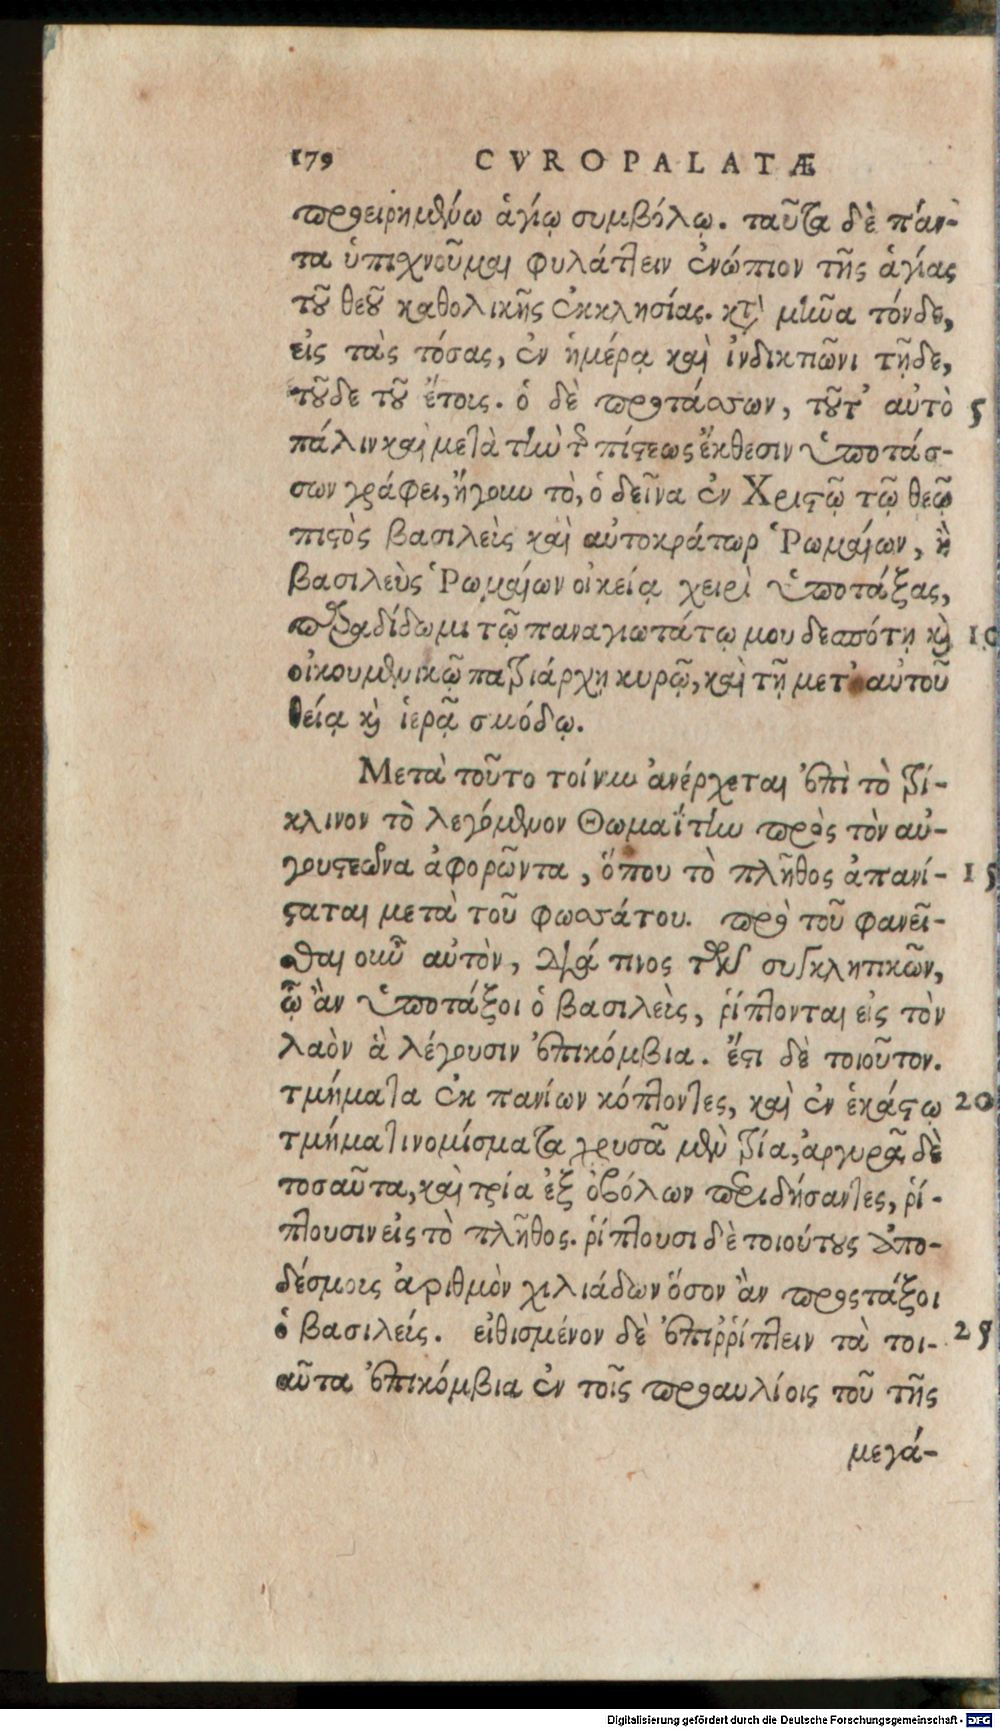 179 CVROPALATÆ
προειρημένῳ ἁγίῳ συμβόλῳ. ταῦτα δὲ πάν-
τα ὑπιχνοῦμαι φυλάττειν ἐνώπιον τῆς ἁγίας
τοῦ θεοῦ καθολικῆς ἐκκλησίας. κτ̀ μῆνα τόνδε,
εἰς τὰς τόσας, ἐν ἡμέρᾳ καὶ ἰνδικτιῶνι τῇδε,
τοῦδε τοῦ ἔτοις. ὁ δὲ προτάσσων, τοῦτ' αὐτὸ 5
πάλιν καὶ μετὰ τὴν τ῀ πίστεως ἔκθεσιν ὑποτάσ-
σων γράφει, ἤγουν τὸ, ὁ δεῖνα ἐν Χριστῷ τῷ θεῷ
πιστὸς βασιλεὶς καὶ αὐτοκράτωρ Ῥωμαίων, ἢ
βασιλεὺς Ῥωμαίων οἰκείᾳ χειρὶ ὑποτάξας,
παραδίδωμι τῷ παναγιωτάτῳ μου δεσπότῃ κὶ 10
οἰκουμενικῷ πατριάρχῃ κυρῷ, καὶ τῇ μετ' αὐτοῦ
θείᾳ κὶ ἱερᾷ συνόδῳ.
Μετὰ τοῦτο τοίνυν ἀνέρχεται ἐπὶ τὸ τρί-
κλινον τὸ λεγόμενον Θωμαΐτην πρὸς τὸν αὐ-
γουστεῶνα ἀφορῶντα, ὅπου τὸ πλῆθος ἀπανί- 15
σταται μετὰ τοῦ φωσάτου. πρὸ τοῦ φανεῖ-
σθαι οὖν αὐτὸν, διά τινος τῶν συγκλητικῶν,
ᾧ ἂν ὑποτάξοι ὁ βασιλεὶς, ῥίπτονται εἰς τὸν
λαὸν ἃ λέγουσιν ἐπικόμβια. ἔστι δὲ τοιοῦτον.
τμήματα ἐκ πανίων κόπτοντες, καὶ ἐν ἑκάστῳ 20
τμήματι νομίσματα χρυσᾶ μὲν τρία, ἀργυρᾶ δὲ
τοσαῦτα, καὶ τρία ἐξ ὀβόλων περιδήσαντες, ῥί-
πτουσιν εἰς τὸ πλῆθος. ῥίπτουσι δὲ τοιούτους ἀπο-
δέσμοις ἀριθμὸν χιλιάδων ὅσον ἂν προστάξοι
ὁ βασιλείς. εἰθισμένον δὲ ἐπιῤῥίπτειν τὰ τοι- 25
αῦτα ἐπικόμβια ἐν τοῖς προαυλίοις τοῦ τῆς
μεγά-
Digitalisierung gefördert durch die Deutsche Forschungsgemeinschaft - DFG